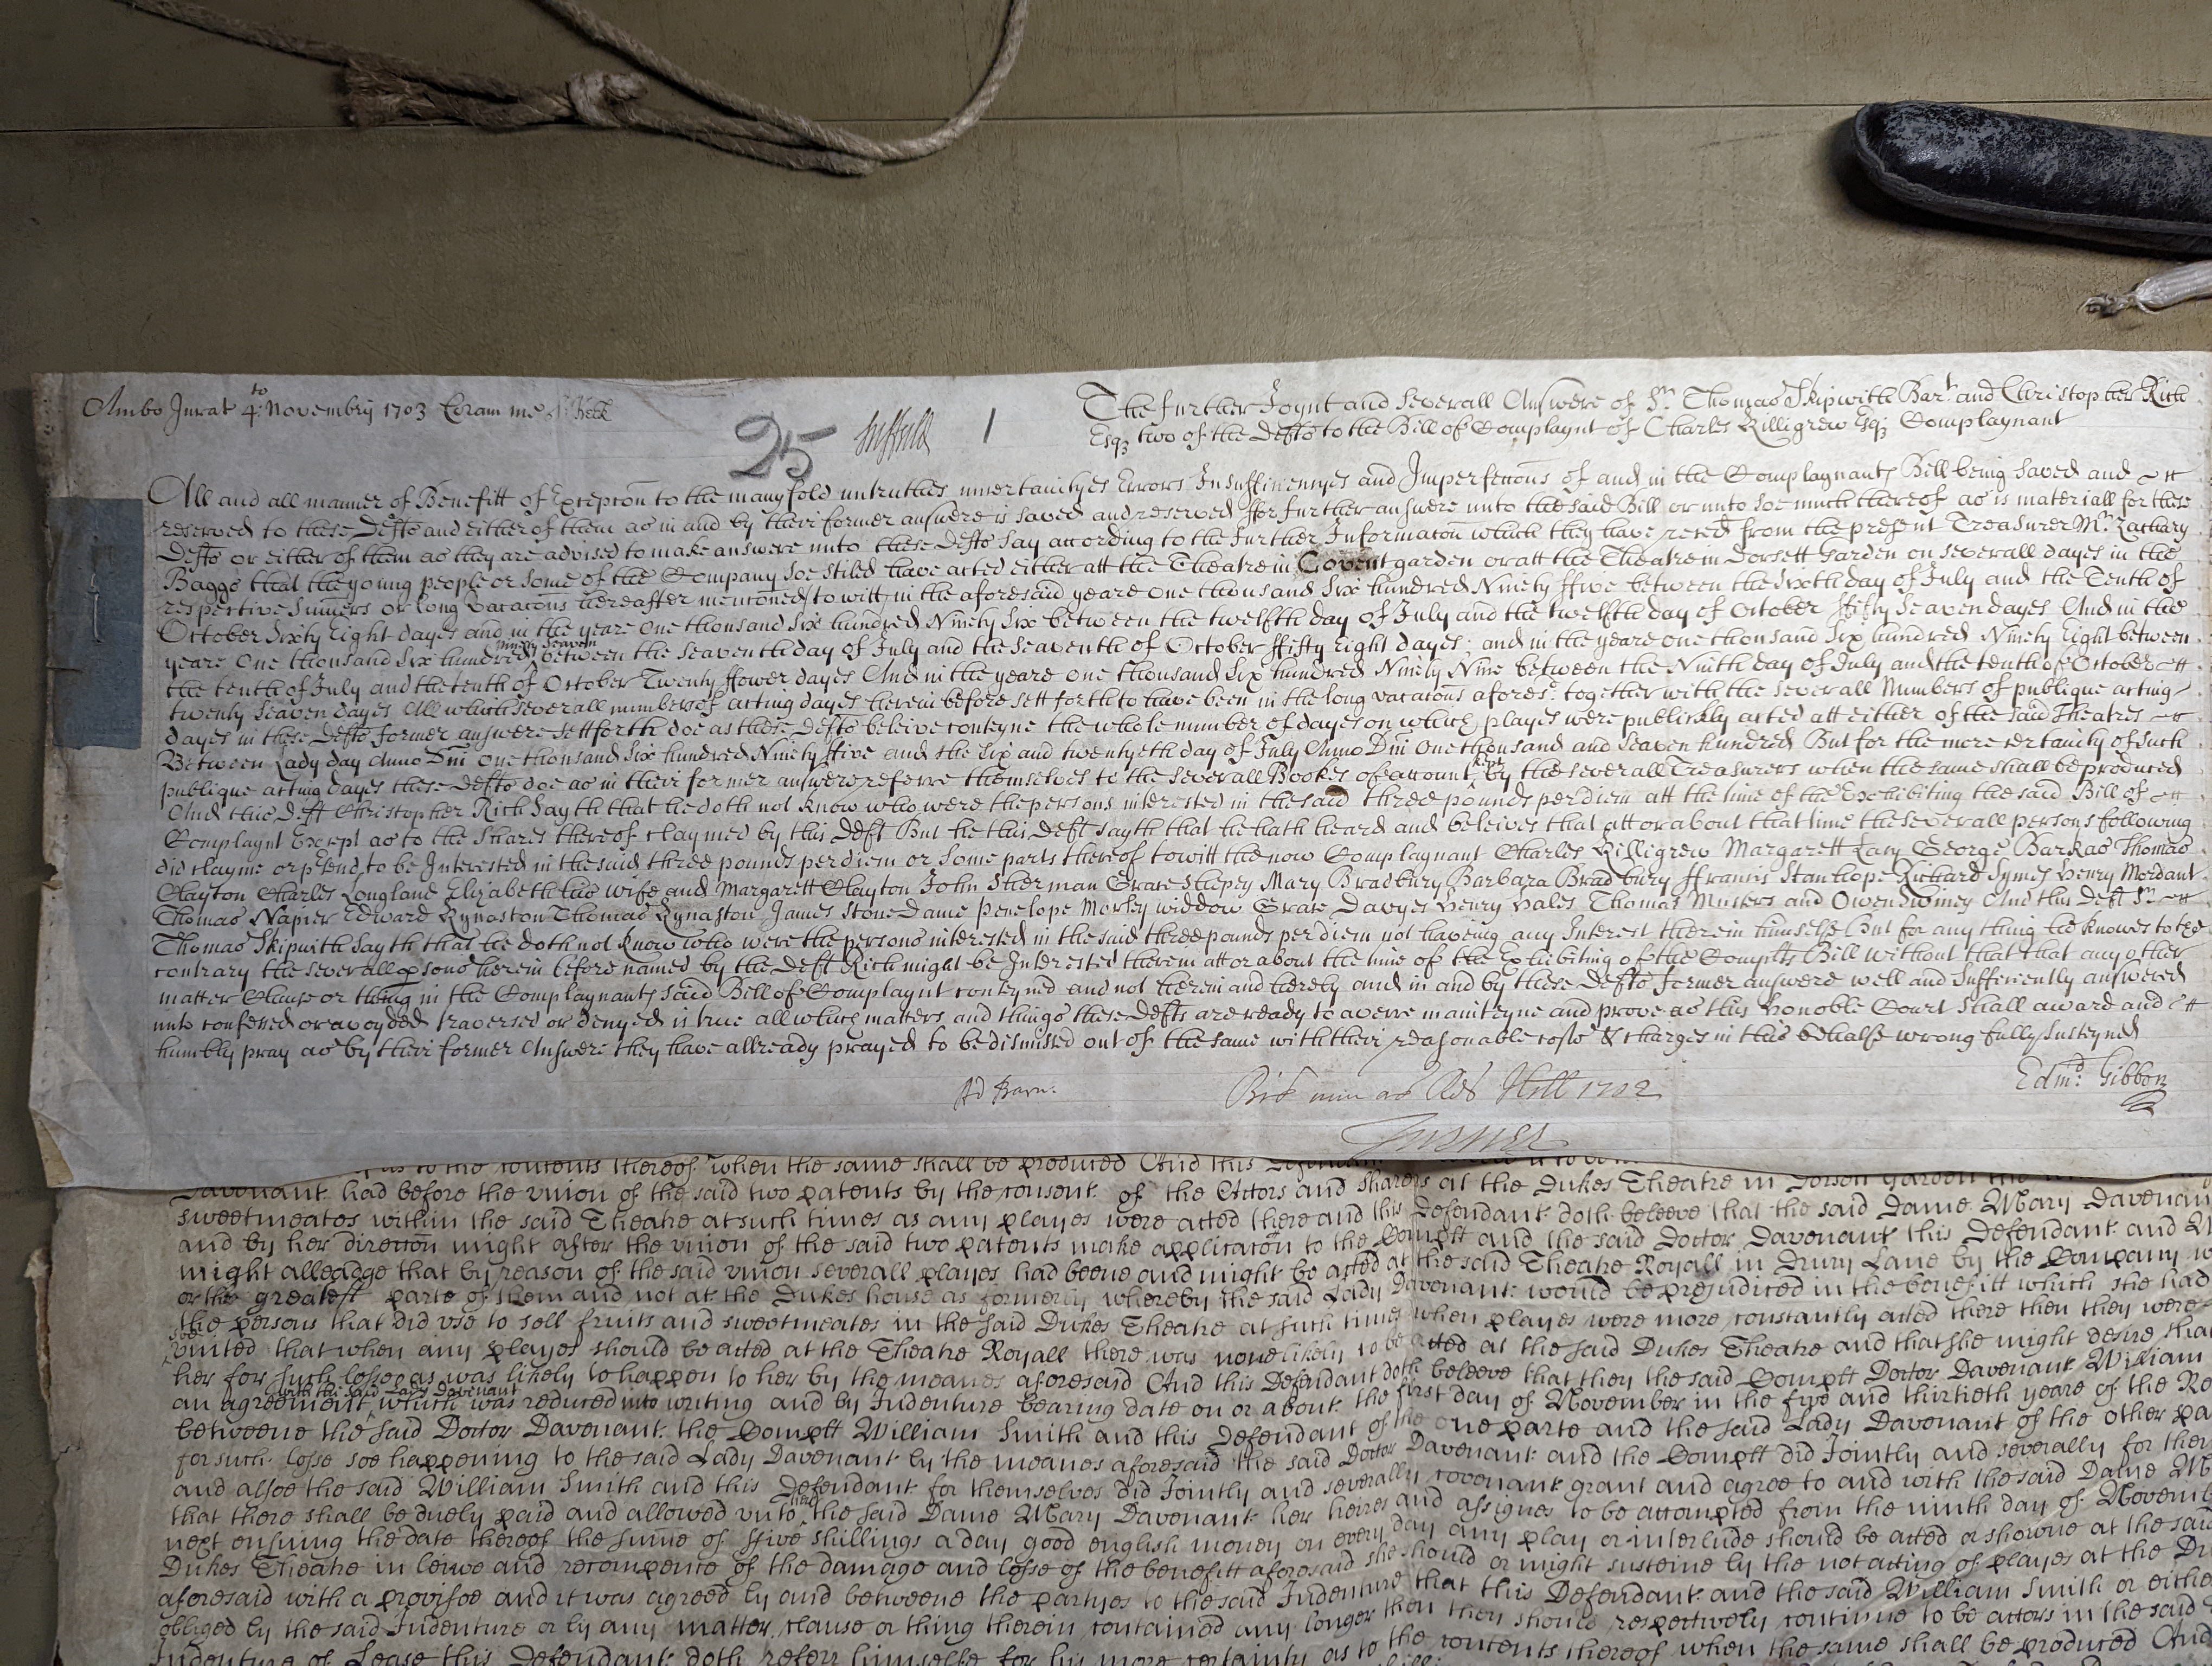 Ambo Jurat 4:to Novembris 1703 Coram me
25 Suffield 1
The further Joynt and severall Answere of Sr. Thomas Skipwith Bart. and Christopher Rich
Esqz two of the Defts to the Bill of Complaynt of Charles Killigrew Esqz Complaynant
All and all manner of Benefitt of Excepcon to the manyfold untruthes incertaintyes Errors Insufficiencyes and Imperfeccons of and in the Complaynants Bill being saved and
reserved to these Defts and either of them as in and by their former answere is saved and reserved ffor further answere unto the said Bill or unto soe much thereof as is materiall for these
Defts or either of them as they are advised to make answere unto these Defts say according to the further Informacon which they have reced from the present Treasurer Mr. Zachary
Baggs that the young people or some of the Company soe stiled have acted either att the Theatre in Covent garden or att the Theatre in Dorsett Garden on severall dayes in the
respective Sumers or long vacacons hereafter menconed to witt in the aforesaid yeare one thousand Six hundred Ninety ffive between the sixth day of July and the Tenth of
October Sixty Eight dayes and in the yeare One thousand Six hundred Ninety Six between the twelfth day of July and the twelfth day of October ffifty Seaven dayes And in the
yeare One thousand Six hundred Ninety Seaven between the Seaventh day of July and the Seaventh of October ffifty Eight dayes; and in the yeare one thousand Six hundred Ninety Eight between
the tenth of July and the tenth of October Twenty ffower dayes And in the yeare one thousand Six hundred Ninety Nine between the Ninth day of July and the tenth of October
twenty Seaven dayes All which severall numbers of acting dayes herein before sett forth to have been in the long vacacons afores: together with the severall Numbers of publique acting
dayes in these Defts former answere sett forth doe as these Defts beleive conteyne the whole number of dayes on which playes were publickly acted att either of the said Theatres
Between Lady day Anno Dni One thousand Six hundred Ninety ffive and the Six and twentyeth day of July Anno Dni One thousand and Seaven hundred But for the more certainty of such
publique acting dayes these Defts doe as in their former answere referre themselves to the severall Bookes of account kept by the severall Treasurers when the same shall be produced
And this Deft Christopher Rich Sayth that he doth not know who were the persons interested in the said three pounds per diem att the time of the Exhibiting the said Bill of
Complaynt Except as to the Shares thereof claymed by this Deft But he this Deft sayth that he hath heard and beleives that att or about that time the severall persons following
did clayme or ptend to be Interested in the said three pounds per diem or some parts thereof to witt the now Complaynant Charles Killigrew Margarett Lacy George Barkas Thomas
Clayton Charles Longland Elizabeth his wife and Margarett Clayton John Sherman Grace Shepey Mary Bradbury Barbara Bradbury ffrancis Stanhope Richard Symes Henry Mordant
Thomas Napier Edward Kynaston Thomas Kynaston James Stone Dame Penelope Morley widdow Grace Davyes Henry Hales Thomas Musters and Owen Swiney And this Deft Sr.
Thomas Skipwith Sayth that he doth not know who were the persons interested in the said three pounds per diem not haveing any Interest therein himselfe But for any thing he knowes to the
contrary the severall psons herein before named by the Deft Rich might be Interested therein att or about the time of the Exhibiting of the Complts Bill without that that any other
matter Clause or thing in the Complaynants said Bill of Complaynt conteyned and not herein and hereby and in and by these Defts former answere well and Sufficiently answered
unto confessed or avoyded traversed or denyed is true all which matters and things these Defts are ready to averre mainteyne and prove as this honoble Court Shall award and
humbly pray as by their former Answere they have allready prayed to be dismissed out of the same with their reasonable costs & charges in this behalfe wrong fully Susteyned
Edmd: Gibbon
Hill 1702
as to the contents thereof when the same shall be produced And this Defendant
Davenant had before the union of the said two patents by the consent of the Actors and sharers at the Dukes Theatre in Dorsett Garden
sweetmeates within the said Theatre at such times as any playes were acted there and this Defendant doth beleeve that the said Dame Mary Davenant
and by her direccon might after the union of the said two patents make applicacon to the Complt and the said Doctor Davenant this Defendant and
might alleadge that by reason of the said union severall playes had beene and might be acted at the said Theatre Royall in Drury Lane by the Company
or the greatest parte of them and not at the Dukes house as formerly whereby the said Lady Davenant would be prejudiced in the benefitt which she had
the persons that did use to sell fruits and sweetmeates in the said Dukes Theatre at such times when playes were more constantly acted there then they were
soe united that when any playes should be acted at the Theatre Royall there was none likely to be acted at the said Dukes Theatre and that she might desire that
her for such losse as was likely to happen to her by the meanes aforesaid And this Defendant doth beleeve that then the said Complt Doctor Davenant William
an agreement with the said Lady Davenant which was reduced into writing and by Indenture bearing date on or about the first day of November in the five and thirtieth yeare of the
betweene the said Doctor Davenant the Complt William Smith and this Defendant of the one parte and the said Lady Davenant of the other
for such losse soe happening to the said Lady Davenant by the meanes aforesaid the said Doctor Davenant and the Complt did Jointly and severally for
and alsoe the said William Smith and this Defendant for themselves did Jointly and severally covenant grant and agree to and with the said Dame
that there shall be duely paid and allowed unto the said Dame Mary Davenant her heires and assignes to be accompted from the ninth day of
next ensuing the date thereof the sume of ffive shillings a day good english money on every day any play or interlude should be acted or showne at the said
Dukes Theatre in leiwe and recompence of the damage and losse of the benefitt aforesaid she should or might susteine by the not acting of playes at the
aforesaid with a provisoe and it was agreed by and betweene the partyes to the said Indenture that this Defendant and the said William Smith or either
obliged by the said Indenture or by any matter, clause or thing therein contained any longer then they should respectively continue to be actors in the said
Indenture of Lease this Defendant doth referr himselfe for his more certainty as to the contents thereof when the same shall be produced And